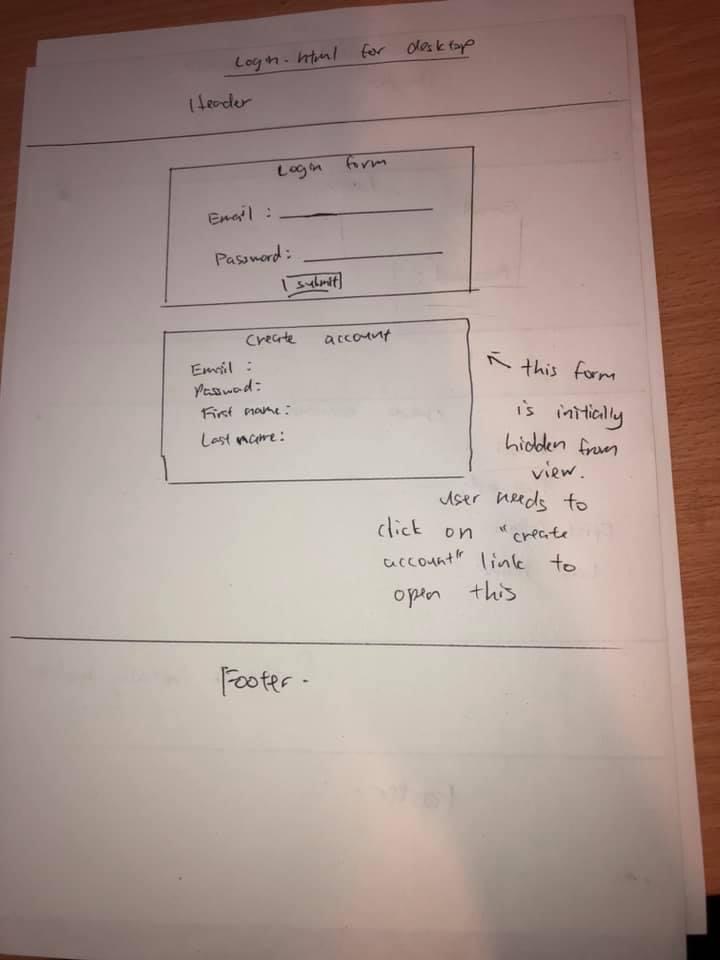 Login.html for desktop
Header
Login form
Email :
Password:
submit
Create account
Email :
Password:
First name:
Last name:
this form
is initially
hidden from
view.
user needs to
click on "create
account" link to
open this
Footer.